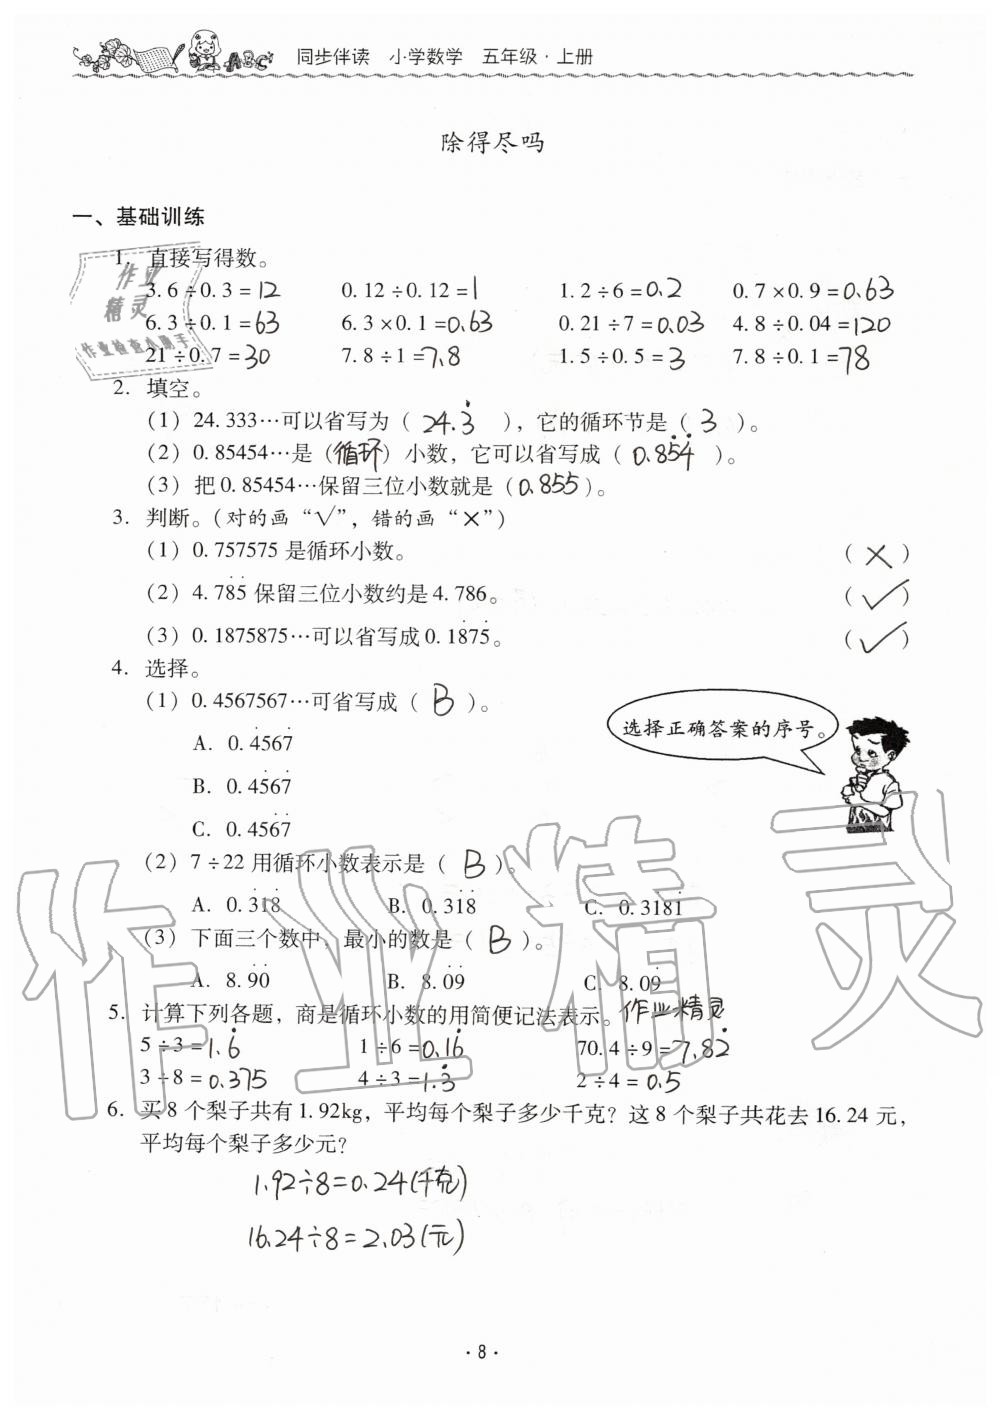 ABC 同步伴读 小学数学 五年级·上册
除得尽吗
一、基础训练
1. 直接写得数。
3.6÷0.3=12 0.12÷0.12=1 1.2÷6=0.2 0.7×0.9=0.63
6.3÷0.1=63 6.3×0.1=0.63 0.21÷7=0.03 4.8÷0.04=120
21÷0.7=30 7.8÷1=7.8 1.5÷0.5=3 7.8÷0.1=78
作业
精灵
作业检查小助手
2. 填空。
(1) 24.333…可以省写为(24.3̇),它的循环节是(3)。
(2) 0.85454…是(循环)小数,它可以省写成(0.85̇4̇)。
(3) 把0.85454…保留三位小数就是(0.855)。
3. 判断。(对的画“√”,错的画“×”)
(1) 0.757575是循环小数。 (×)
(2) 4.78̇5̇保留三位小数约是4.786。 (√)
(3) 0.1875875…可以省写成0.18̇75̇。 (√)
4. 选择。
(1) 0.4567567…可省写成(B)。
选择正确答案的序号。
A. 0.4̇567̇
B. 0.45̇67̇
C. 0.456̇7̇
(2) 7÷22用循环小数表示是(B)。
A. 0.3̇18̇ B. 0.31̇8̇ C. 0.3181̇
(3) 下面三个数中,最小的数是(B)。
A. 8.9̇0̇ B. 8.0̇9̇ C. 8.09̇
5. 计算下列各题,商是循环小数的用简便记法表示。作业精灵
5÷3=1.6̇ 1÷6=0.16̇ 70.4÷9=7.82̇
3÷8=0.375 4÷3=1.3̇ 2÷4=0.5
6. 买8个梨子共有1.92kg,平均每个梨子多少千克?这8个梨子共花去16.24元,
平均每个梨子多少元?
1.92÷8=0.24(千克)
16.24÷8=2.03(元)
作业精灵
·8·